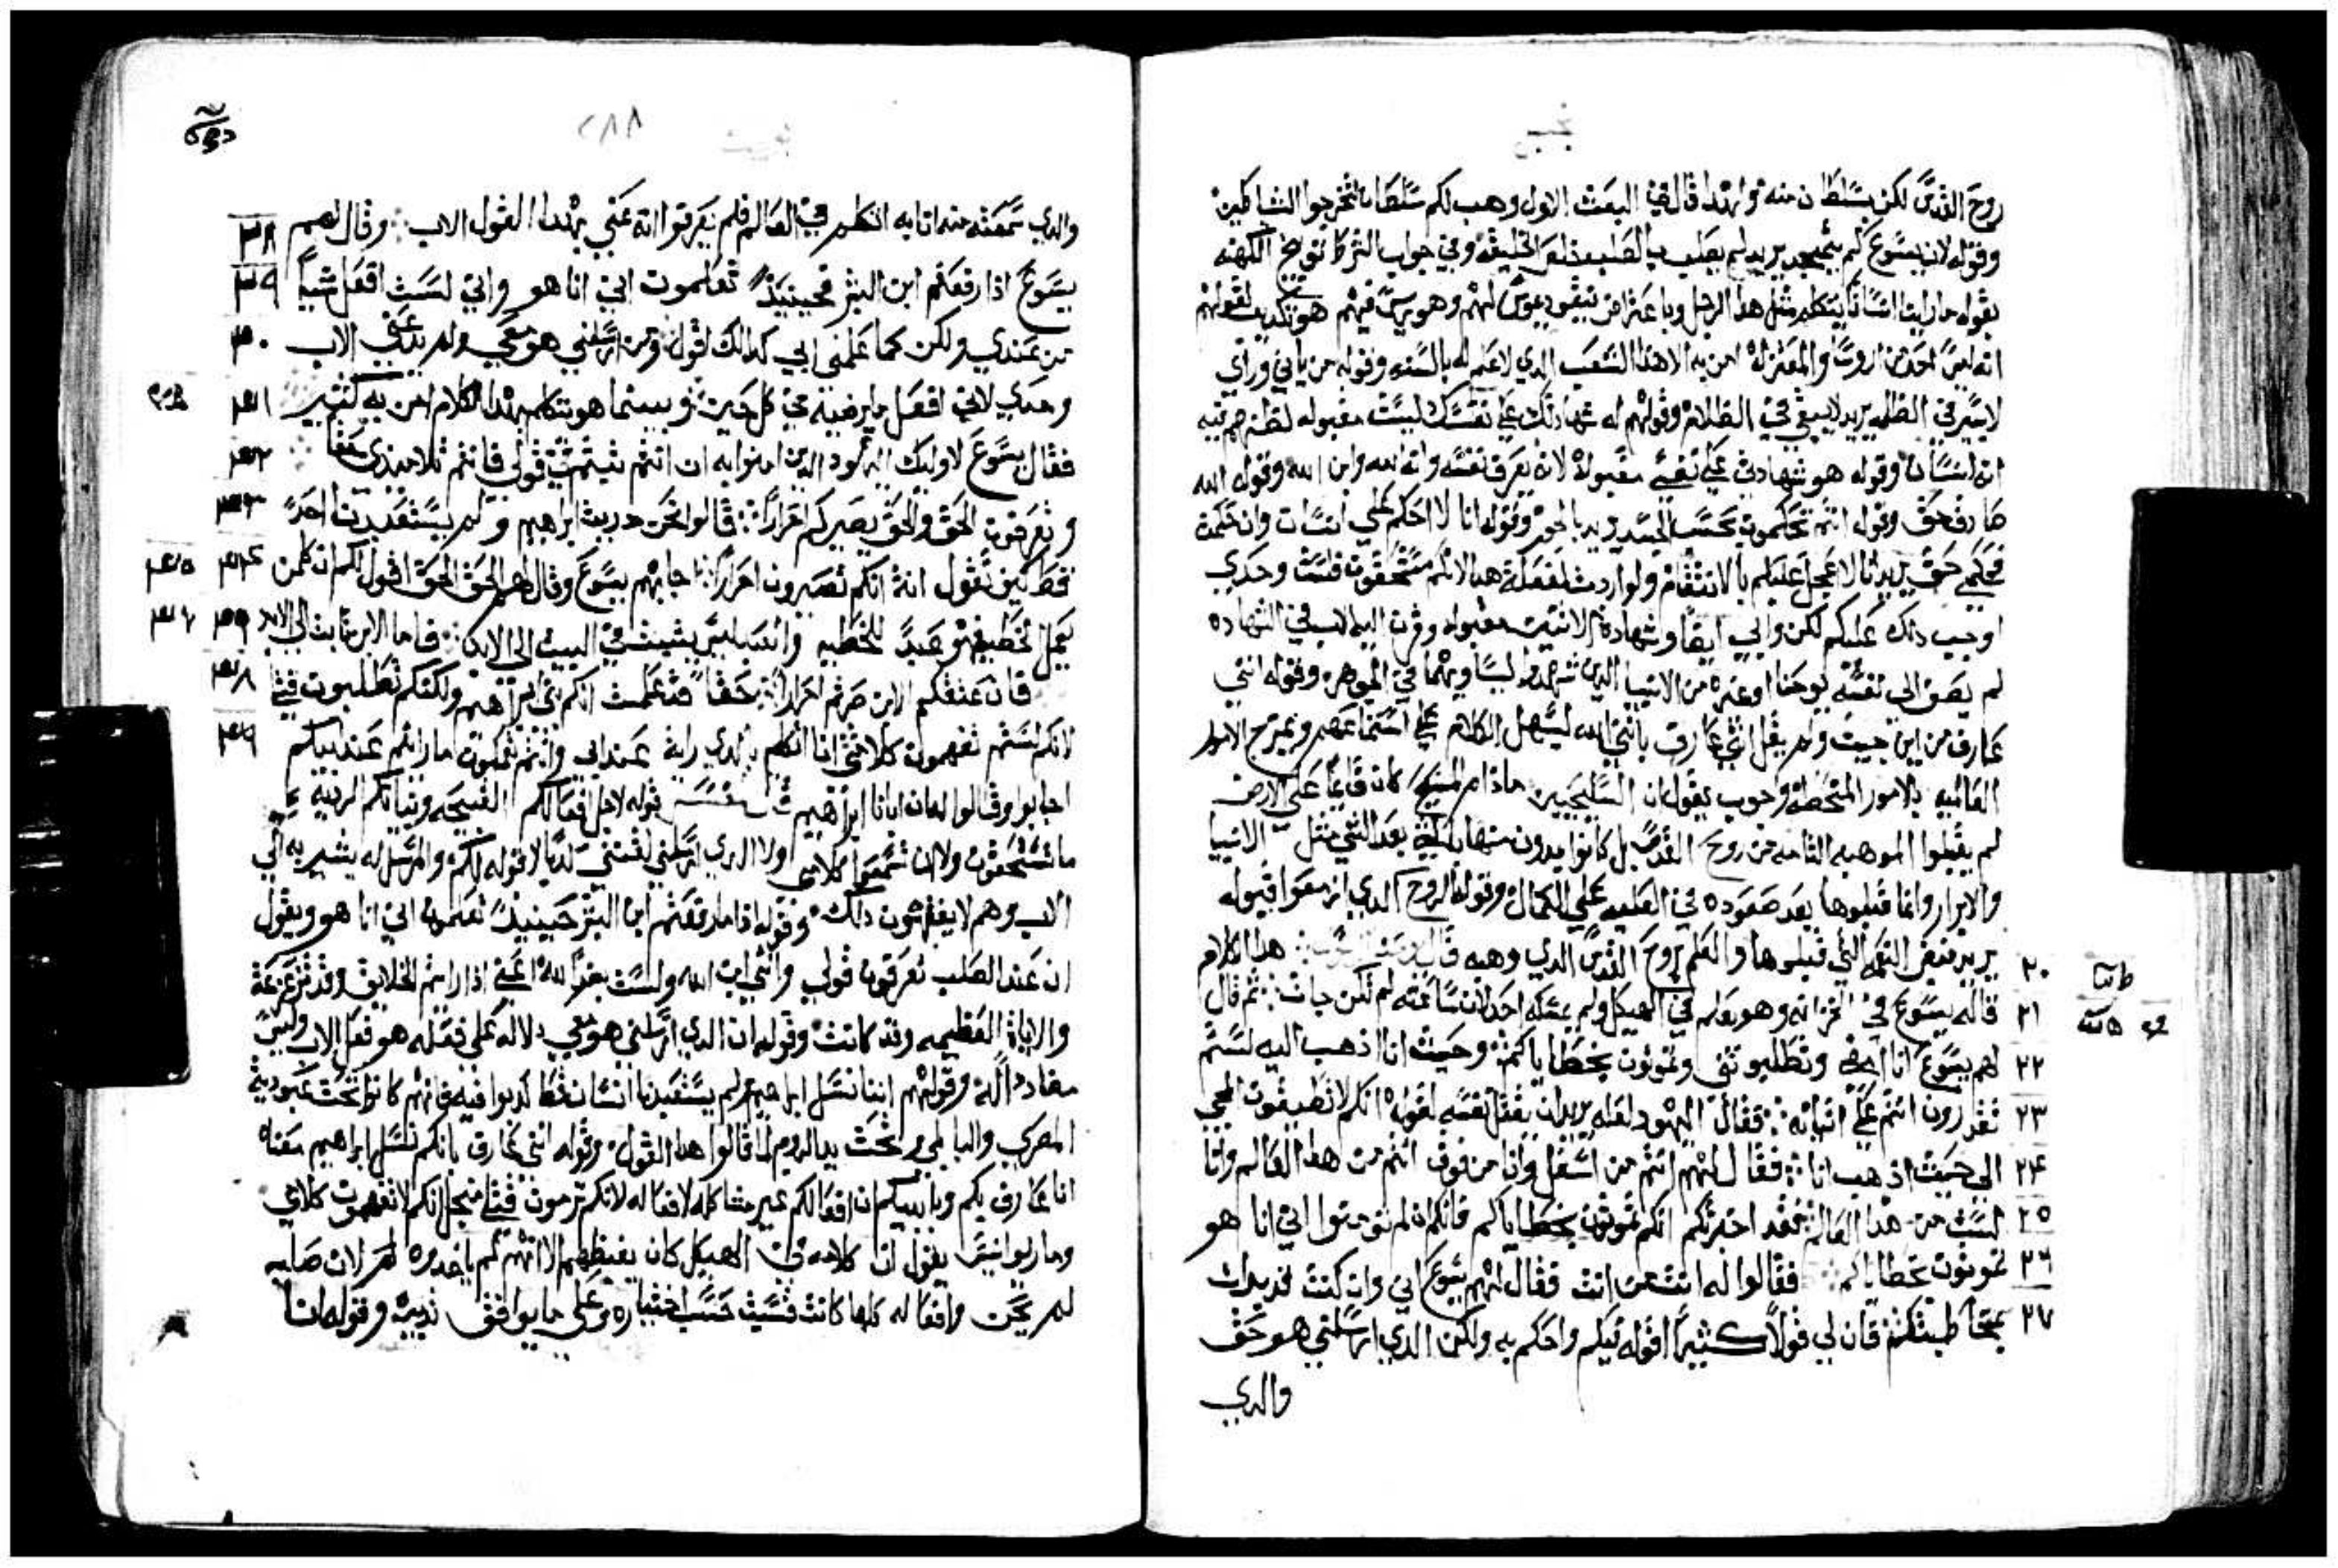 روح القدس لكن بسلطان منه ولهذا قال في البعث الاول وهب لكم سلطانا لتخرجوا الشياطين
وقوله لان يسوع لم يتمجد يريد لم يصلب بالصليب خلص الخليقه وفي جواب الشرط توبيخ الكهنه
بقوله ما راينا انسانا يتكلم مثل هذا الرجل
انه ليس احد من الروسا والمعتزله امن به الا هذا الشعب الذي لا علم له بالسنه وقوله من ياتي وراي
لا يسير في الظلمه يريد لا يبقي في الظلام وقولهم له شهادتك علي نفسك ليست مقبوله لظنهم فيه
انه انسان وقوله هو شهادتي علي نفسي مقبولة لانه يعرف نفسه وانه الله وابن الله وقوله الله
صادق حق وقوله انتم تحكمون بحسب الجسد يريد بالجور وقوله انا لا احكم علي انسان وان حكمت
فحكمي حق يريد انا لا اعجل عليكم بالانتقام ولو اردت لفعلة هدا لانكم مستحقون فلست وحدي
اوجب دلك عليكم لكن وابي ايضا وشهادة الاثنين مقبوله وقرن اليه الاب في الشهاده
لم يضف الى نفسه يوحنا اوغيره من الانبيا الدين شهدوا ليساويهما في الجوهر وقوله انني
عارف من اين جيت ولم يقل انني عارف بانني الله ليسهل الكلام علي استماعهم ويمزج الامور
العاليه بالامور المنحطه وجوب يقول ان السليحيين ماذام المسيح كان قايما على الارض
لم يقبلوا الموهبه التامه من روح القدس بل كانوا يدون منها
والابرار وانما قبلوها بعد صعوده في العليه علي الكمال وقوله الروح الدي ازمعوا قبوله
يريد فيض النعمه التي قبلوها والعلم بروح القدس الدي وهبه قال هدا الكلام
٢٠ قاله يسوع في الخزانه وهو يعلم في الهيكل ولم يمسكه احد لان ساعته لم تكن جات ثم قال
٢١ لهم يسوع انا امضي وتطلبونني وتموتون بخطاياكم وحيث انا ادهب اليه لستم
٢٢ تقدرون انتم علي اتيانه فقال اليهود لعله يريد ان يقتل نفسه لقوله انكم لا تطيقون المجي
٢٣ الى حيث ادهب انا فقال لهم انتم من اسفل وانا من فوق انتم من هدا العالم وانا
٢٤ لست من هدا العالم فقد اخبرتكم انكم تموتون بخطاياكم فانكم ان لم تومنوا اني انا هو
٢٥ تموتون بخطاياكم فقالوا له انت من انت فقال لهم يسوع اني وان كنت قد بدات
٢٦ بمخاطبتكم فان لي قولا كثيرا اقوله فيكم واحكم به ولكن الدي ارسلني هو حق
٢٧
والدي
٢٨٨
والدي سمعته منه انا به اتكلم في العالم فلم يعرفوا انه عني بهدا القول الاب وقال لهم
يسوع ادا رفعتم ابن البشر فحينيد تعلمون اني انا هو واني لست افعل شيا
من عندي ولكن كما علمني ابي كدالك اقول ومن ارسلني هو معي ولم يدعني الاب
وحدي لاني افعل ما يرضيه في كل حين وبينما هو يتكلم بهدا الكلام امن به كثير
فقال يسوع لاوليك اليهود الدين امنوا به ان انتم ثبتم في قولي فانتم تلاميدي حقا
وتعرفون الحق والحق يصيركم احرارا قالوا نحن درية ابراهيم ولم يستعبدنا احد
قط كيف تقول انة انكم تصيرون احرارا اجابهم يسوع وقال لهم الحق الحق اقول لكم ان كلمن
يعمل الخطيه فهو عبد للخطيه والعبد ليس يثبت في البيت الي الابد فاما الابن ثابت الي الابد
فان عتقكم الابن صرتم احرارا حقا قد علمت انكم بني ابراهيم ولكنكم تطلبون قتلي
لانكم لستم تفهمون كلامي انا اتكلم بالدي راية عند ابي وانتم تعملون ما رايتم عند ابيكم
اجابوا وقالوا له ان ابانا ابراهيم قوله لاجل افعالكم القبيحه ونياتكم الرديه
ما تستحقون ولا ان تسمعوا كلامي ولا الدي ارسلني
الاب وهم لا يفهمون دلك وقوله ادا ما رفعتم ابن البشر حينيد تعلمون اني انا هو ويقول
ان عند الصلب تعرفون قولي وانني ابن الله ولست بضد لله اعني ادا رايتم الخلايق وقد تزعزعة
والاياة العظيمه وقد كانت وقوله ان الدي ارسلني هو معي دلاله علي فعله هو فعل الاب وليس
مضادد الله وقولهم اننا نسل ابراهيم ولم يستعبدنا انسان قط كدبوا فيه فانهم كانوا تحت عبودية
المصري والبابلي وتحت يد الروم لما قالوا هدا القول وقوله انني عارف بانكم نسل ابراهيم معناه
انا عارف بكم وبابيكم ان افعالكم غير مشاكله لافعاله لانكم ترومون قتلي من اجل انكم لا تفهمون كلامي
وماريوانيس يقول ان كلامه في الهيكل كان يغيظهم الا انهم لم ياخدوه لان صلبه
لم يحن وافعاله كلها كانت حسب اختياره وعلي ما يوافق تدبيره وقوله انا